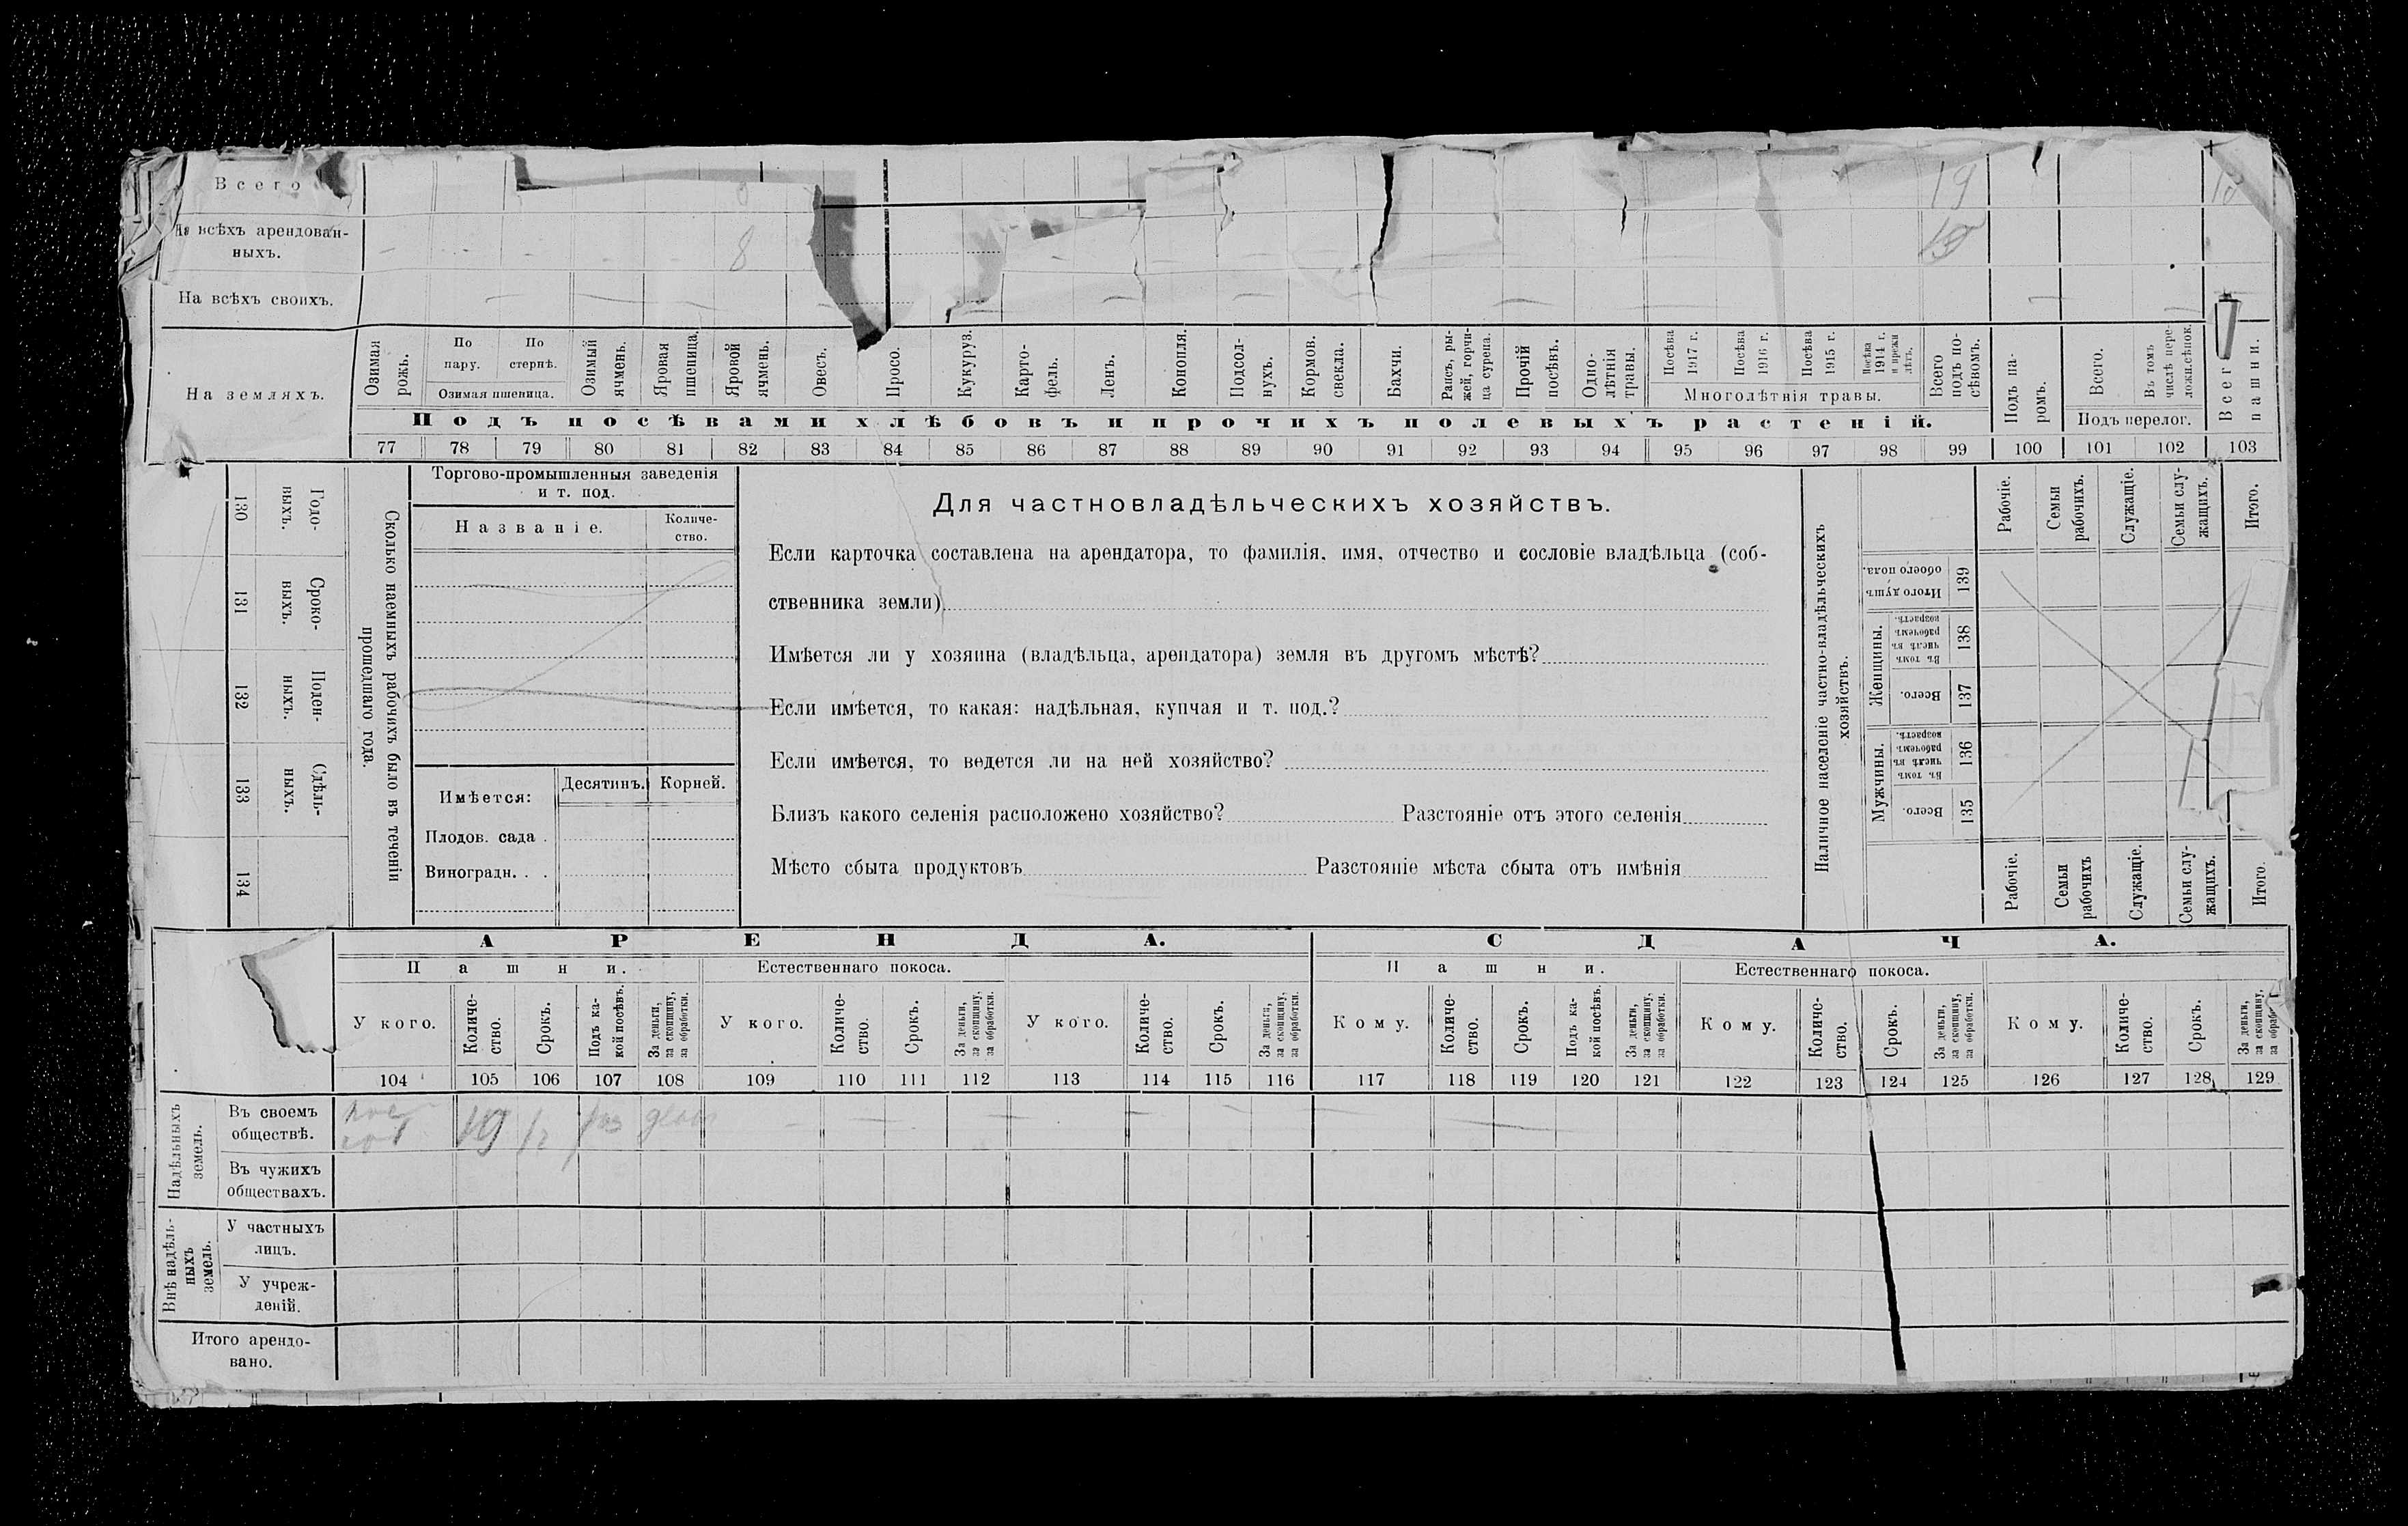 Всего
На всѣхъ арендован-
ныхъ.
8
19
На всѣхъ своихъ.
На земляхъ.
Озимая рожь.
По пару.
По стернѣ.
Озимая пшеница.
Озимый ячмень.
Яровая пшеница.
Яровой ячмень.
Овесъ.
Просо.
Кукуруз.
Карто-
фель.
Ленъ.
Конопля.
Подсол-
нухъ.
Кормов.
свекла.
Бахчи.
Рапсъ, ры-
жей, горчи-
ца сурепа.
Прочій
посѣвъ.
Одно-
лѣтнія
травы.
Посѣва
1917 г.
Посѣва
1916 г.
Посѣва
1915 г.
Посѣва
1914 г.
и прежн
лѣтъ.
Многолѣтнія травы.
Всего
подъ по-
сѣвомъ.
Подъ па-
ромъ.
Всего.
Въ томъ
числѣ пере-
ложн.сѣнок.
Подъ перелог.
Всег
пашни.
Подъ посѣвами хлѣбовъ и прочихъ полевыхъ растеній.
77 78 79 80 81 82 83 84 85 86 87 88 89 90 91 92 93 94 95 96 97 98 99 100 101 102 103
130
Годо-
выхъ.
131
Сроко-
выхъ.
132
Поден-
ныхъ.
133
Сдѣль-
ныхъ.
134
Сколько наемныхъ рабочихъ было въ теченіи
прошедшаго года.
Торгово-промышленныя заведенія
и т. под.
Названіе.
Количе-
ство.
Имѣется:
Десятинъ.
Корней.
Плодов. сада .
Виноградн. . .
Для частновладѣльческихъ хозяйствъ.
Если карточка составлена на арендатора, то фамилія, имя, отчество и сословіе владѣльца (соб-
ственника земли)
Имѣется ли у хозяина (владѣльца, арендатора) земля въ другомъ мѣстѣ?
Если имѣется, то какая: надѣльная, купчая и т. под.?
Если имѣется, то ведется ли на ней хозяйство?
Близъ какого селенія расположено хозяйство? Разстояніе отъ этого селенія
Мѣсто сбыта продуктовъ Разстояніе мѣста сбыта отъ имѣнія
Наличное населеніе частно-владѣльческихъ
хозяйствъ.
Рабочіе.
Семьи
рабочихъ.
Служащіе.
Семьи слу-
жащихъ.
Итого.
Итого душъ
обоего пола.
139
Женщины.
Въ томъ
числѣ въ
рабочемъ
возрастѣ.
138
Всего.
137
Мужчины.
Въ томъ
числѣ въ
рабочемъ
возрастѣ.
136
Всего.
135
Рабочіе.
Семьи
рабочихъ
Служащіе.
Семьи слу-
жащихъ.
Итого
АРЕНДА. СДАЧА.
Пашни. Естественнаго покоса. Пашни. Естественнаго покоса.
У кого.
Количе-
ство.
Срокъ.
Подъ ка-
кой посѣвъ.
За деньги,
за скопщину,
за обработки.
У кого.
Количе-
ство.
Срокъ.
За деньги,
за скопщину,
за обработки.
У кого.
Количе-
ство.
Срокъ.
За деньги,
за скопщину,
за обработки.
Кому.
Количе-
ство.
Срокъ.
Подъ ка-
кой посѣвъ.
За деньги,
за скопщину,
за обработки.
Кому.
Количе-
ство.
Срокъ.
За деньги,
за скопщину,
за обработки.
Кому.
Количе-
ство.
Срокъ.
За деньги,
за скопщину,
за обраб
104 105 106 107 108 109 110 111 112 113 114 115 116 117 118 119 120 121 122 123 124 125 126 127 128 129
Надѣльныхъ
земель.
Въ своемъ
обществѣ.
19
Въ чужихъ
обществахъ.
Внѣ надѣль-
ныхъ
земель.
У частныхъ
лицъ.
У учреж-
деній.
Итого арендо-
вано.